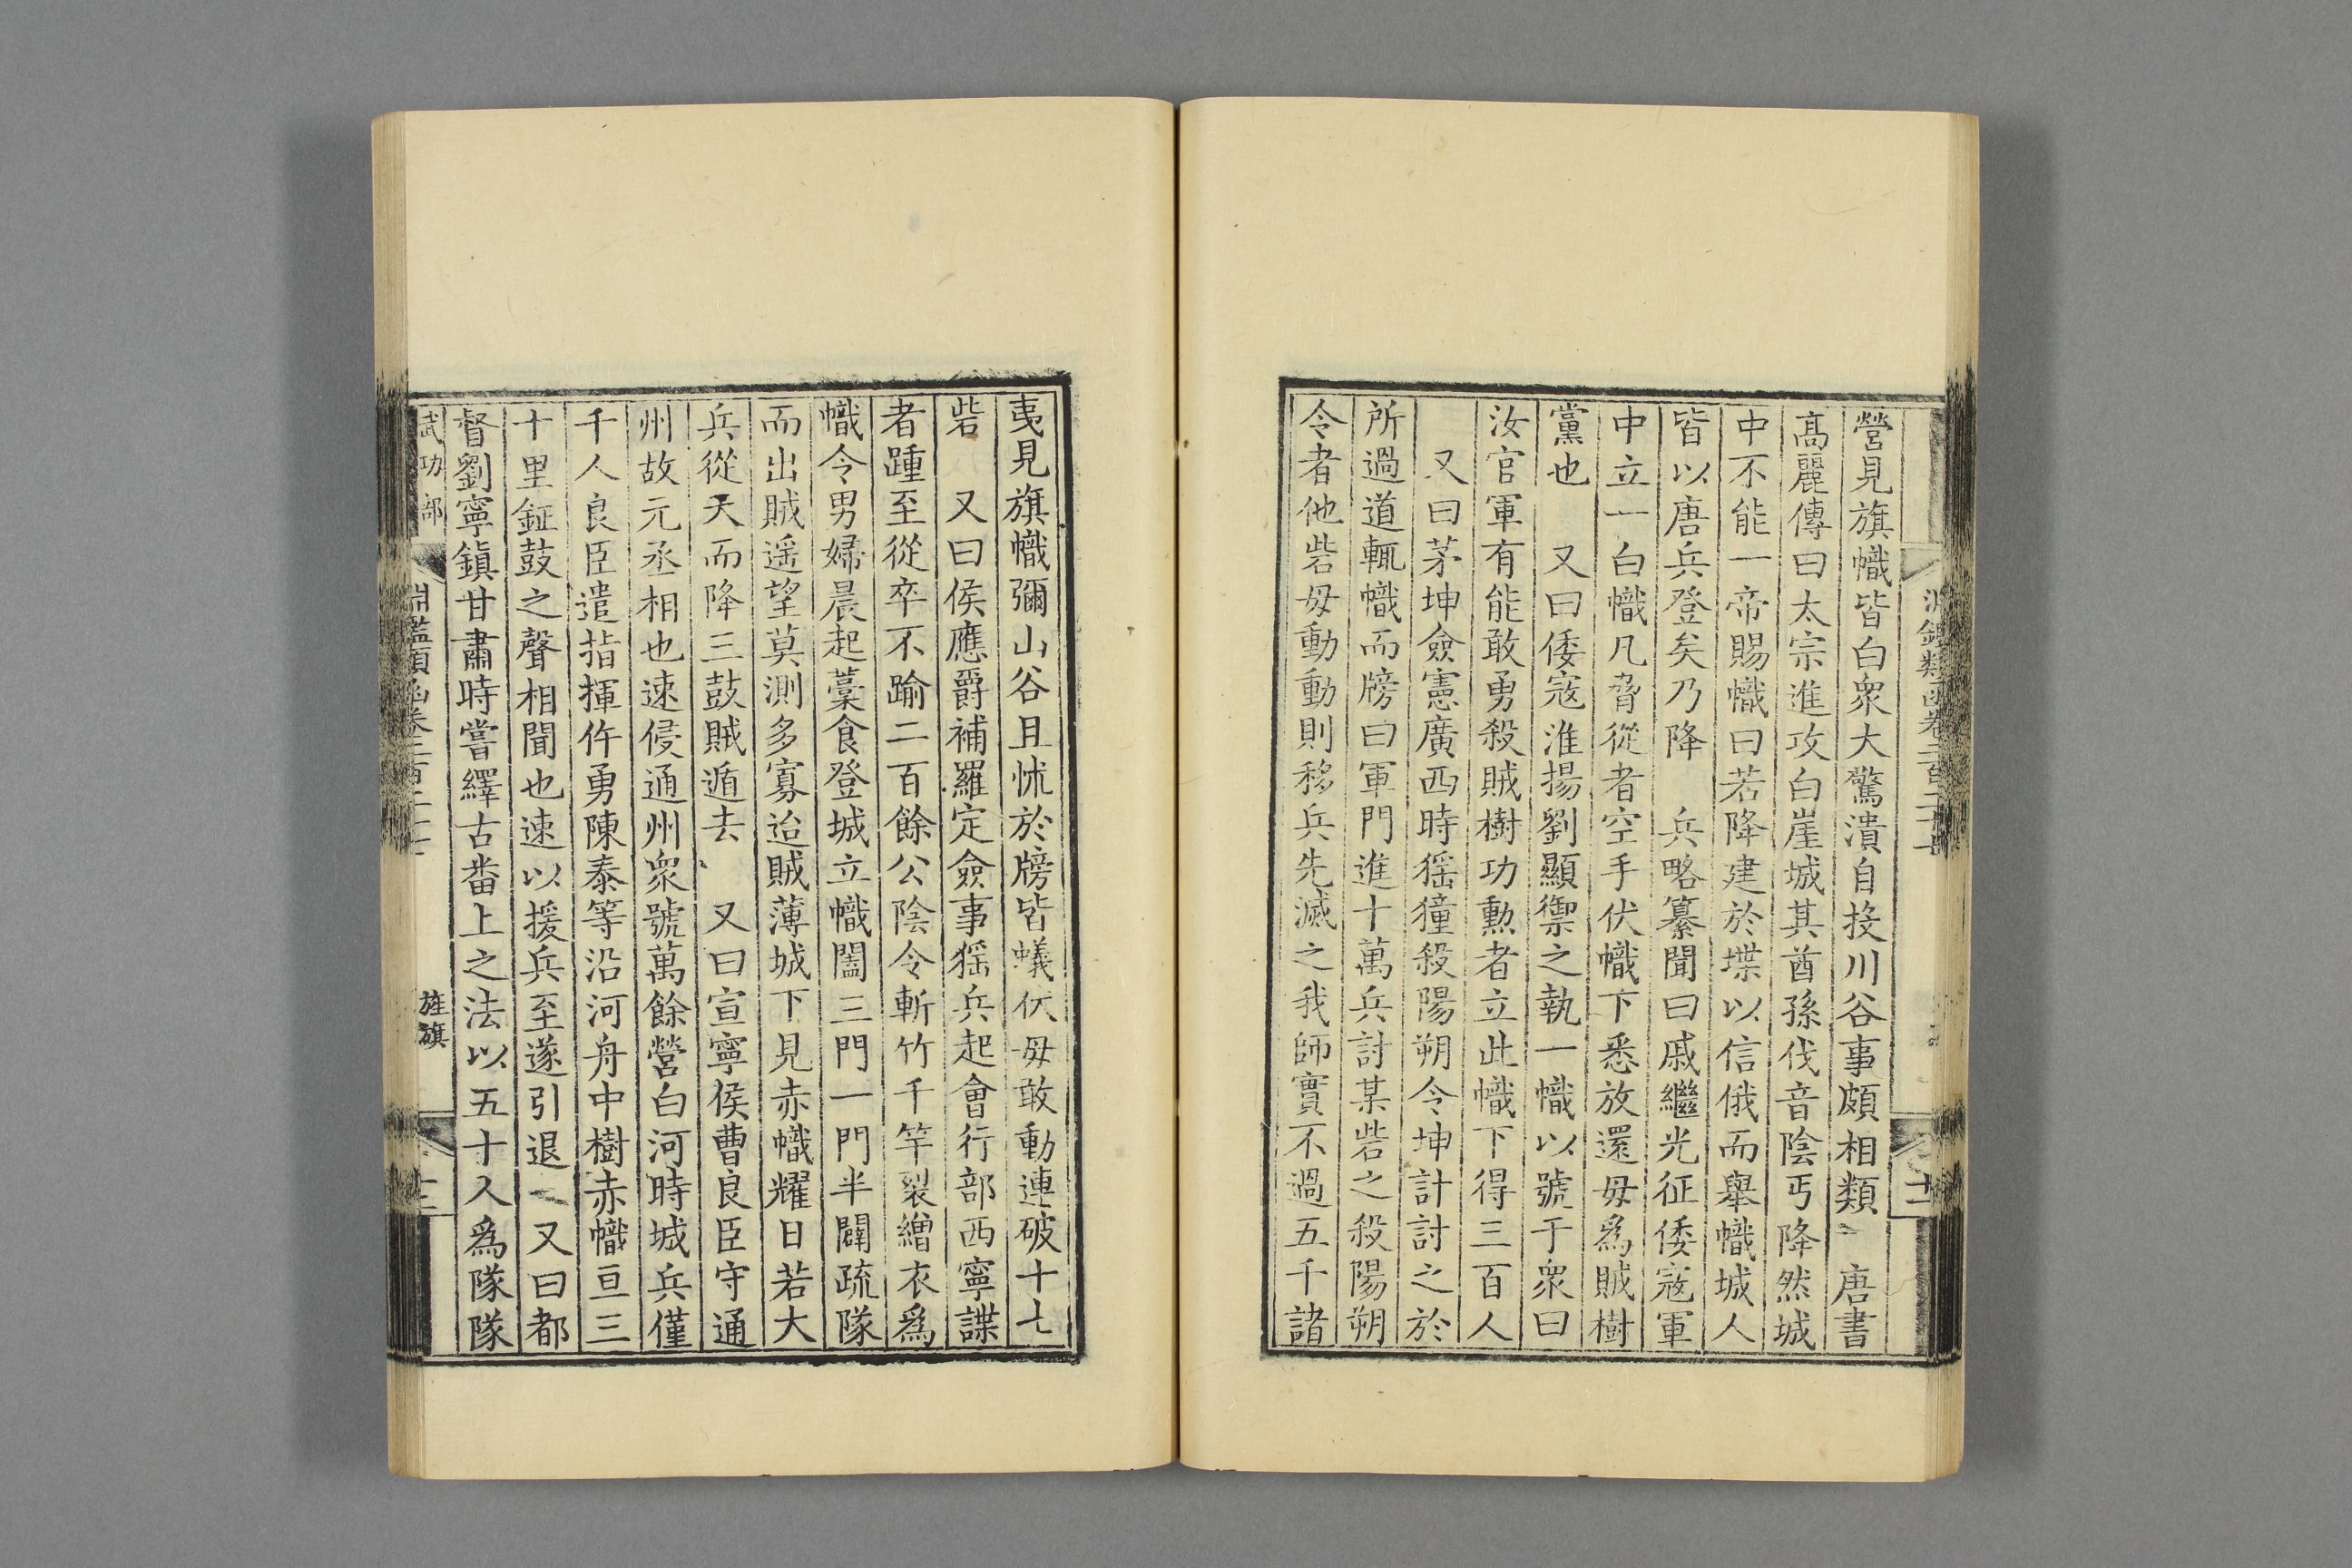 營見旗幟皆白衆大驚潰自投川谷事頗相類　唐書
高麗傳曰太宗進攻白崖城其酋孫伐音陰丐降然城
中不能一帝賜幟曰若降建於堞以信俄而舉幟城人
皆以唐兵登矣乃降　兵略纂聞曰戚繼光征倭寇軍
中立一白幟凡脅從者空手伏幟下悉放還毋爲賊樹
黨也　又曰倭寇淮揚劉顯禦之執一幟以號于衆曰
汝官軍有能敢勇殺賊樹功勲者立此幟下得三百人
又曰茅坤僉憲廣西時猺獞殺陽朔令坤計討之於
所過道輒幟而牓曰軍門進十萬兵討某砦之殺陽朔
令者他砦毋動動則移兵先滅之我師實不過五千諸
夷見旗幟彌山谷且怵於牓皆蟻伏毋敢動連破十七
砦　又曰侯應爵補羅定僉事猺兵起會行部西寧諜
者踵至從卒不踰二百餘公陰令斬竹千竿裂繒衣爲
幟令男婦晨起蓐食登城立幟闔三門一門半闢疏隊
而出賊遥望莫測多寡迨賊薄城下見赤幟耀日若大
兵從天而降三鼓賊遁去　又曰宣寧侯曹良臣守通
州故元丞相也速侵通州衆號萬餘營白河時城兵僅
千人良臣遣指揮仵勇陳泰等沿河舟中樹赤幟亘三
十里鉦鼓之聲相聞也速以援兵至遂引退　又曰都
督劉寧鎮甘肅時嘗繹古番上之法以五十人爲隊隊
武功部
淵鑑類函卷二百二十七
旌旗